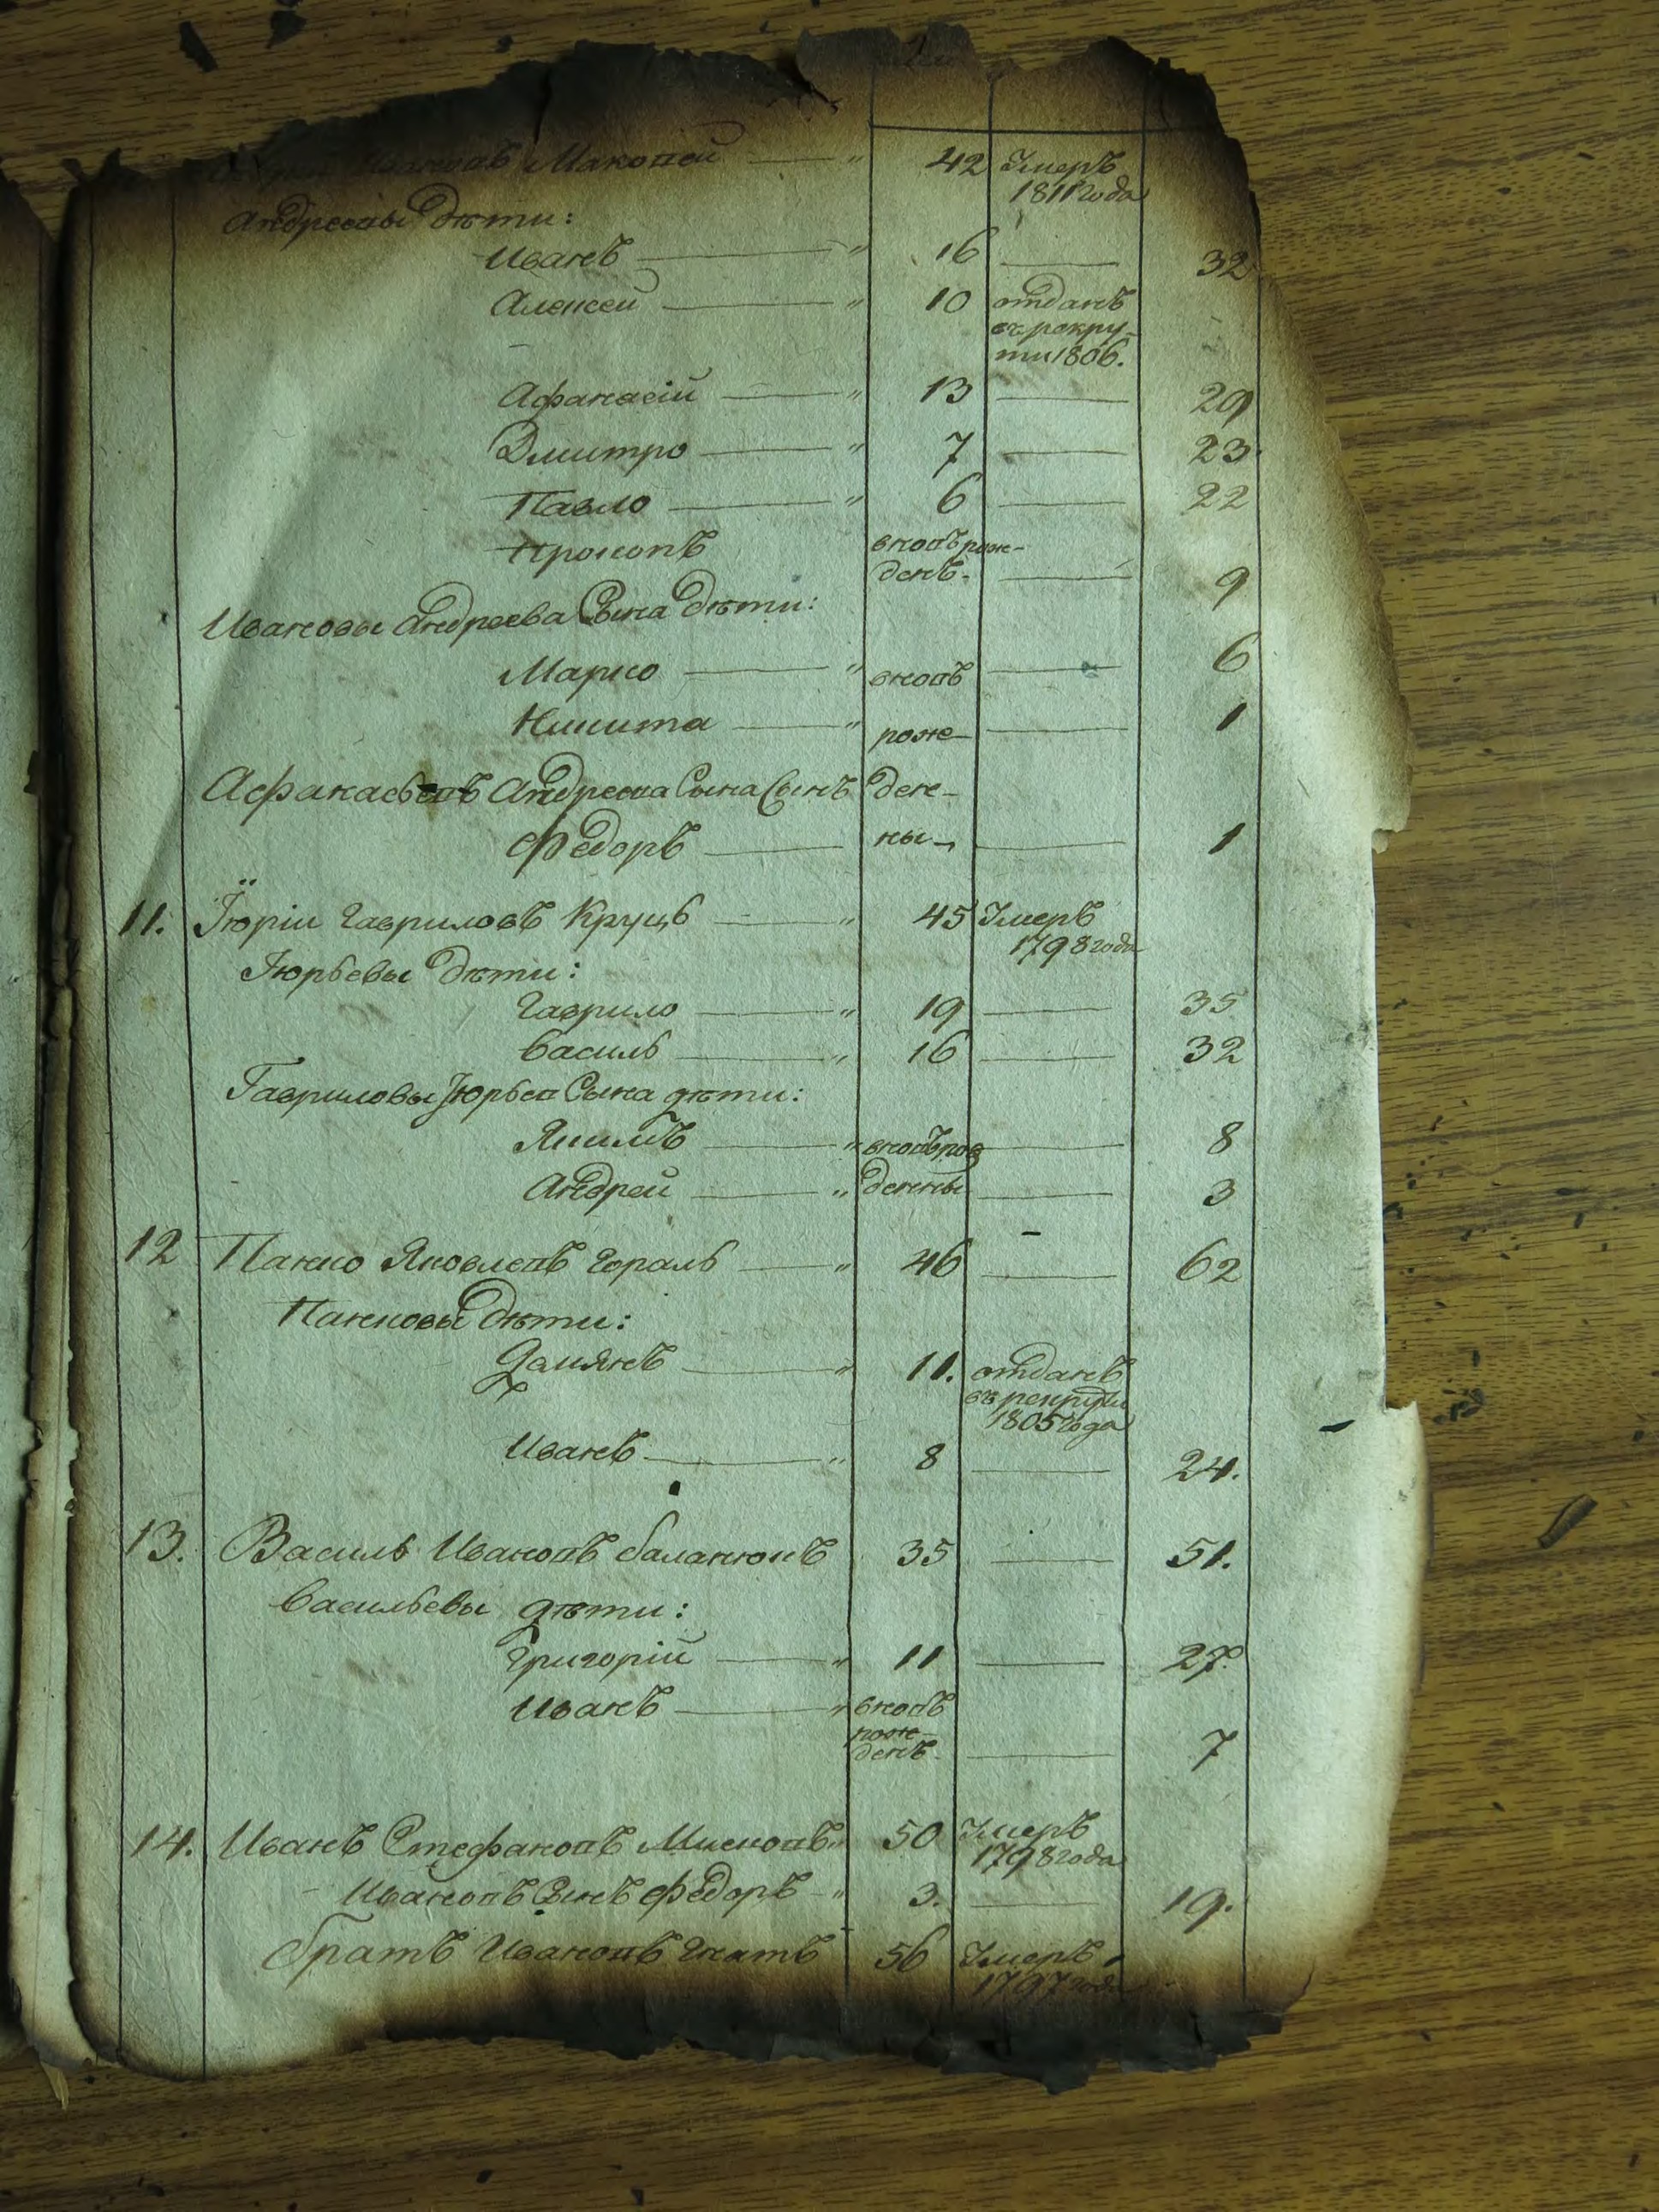 Маковей — " 42 Умеръ
1811 года
Андреевы дѣти:
Иванъ — " 16 — 32
Алексей — " 10 отданъ
въ рекру-
ти 1806.
Афанасій — " 13 — 29
Дмитро — " 7 — 23
Павло — " 6 — 22
Прокопъ вновъ рож-
денъ. — 9
Ивановы Андреева Сына дѣти:
Марко — " вновъ — 6
Никита — " рож- — 1
Афанасьевъ Андреева Сына Сынъ ден-
Федоръ — ны — 1
11. Юріи Гавриловъ Круць — " 45 Умеръ
1798 года
Юрьевы дѣти:
Гаврило — " 19 — 35
Василь — " 16 — 32
Гавриловы Юрьев Сына дѣти:
Якимъ — " вновъ рож — 8
Андрей — " денны — 3
12 Панко Яковлевъ Гораль — " 46 — 62
Панковы дѣти:
Дамянъ — " 11. отданъ
въ рекруты
1805 года
Иванъ — " 8 — 24.
13. Василь Ивановъ Баланюкъ 35 — 51.
Васильевы дѣти:
Григорій — " 11 — 27.
Иванъ — " вновъ
рож-
денъ. — 7
14. Иванъ Стефановъ " 50 Умеръ
1798 года
Ивановъ Сынъ Федоръ — " 3. — 19.
братъ Ивановъ Гнатъ 56 Умеръ
1797 года